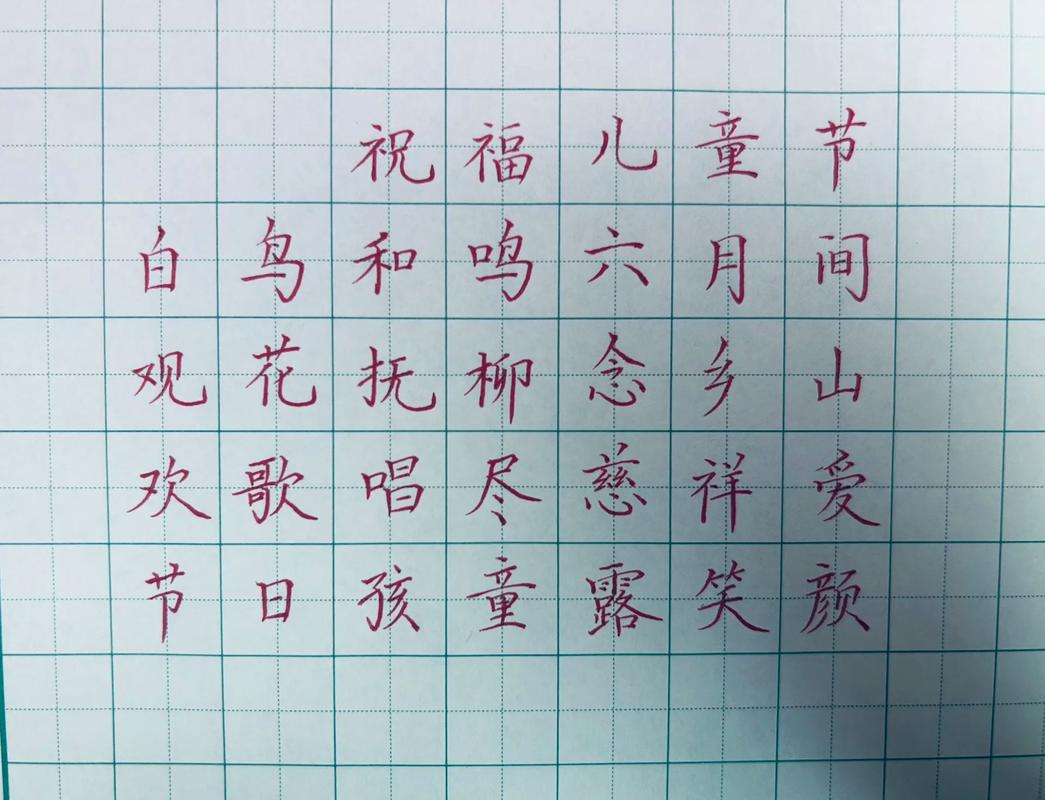 祝福儿童节
白鸟和鸣六月间
观花抚柳念乡山
欢歌唱尽慈祥爱
节日孩童露笑颜